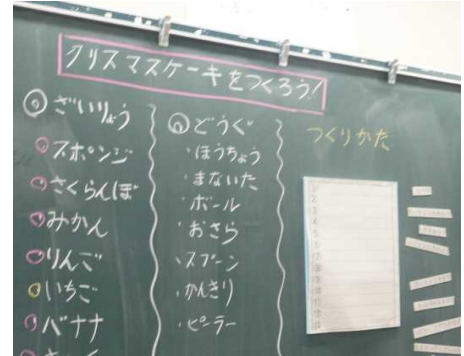 クリスマスケーキをつくろう!
◎ざいりょう
スポンジ
さくらんぼ
みかん
りんご
いちご
バナナ
◎どうぐ
・ほうちょう
・まないた
・ボール
・おさら
・スプーン
・かんきり
・ピーラー
つくりかた